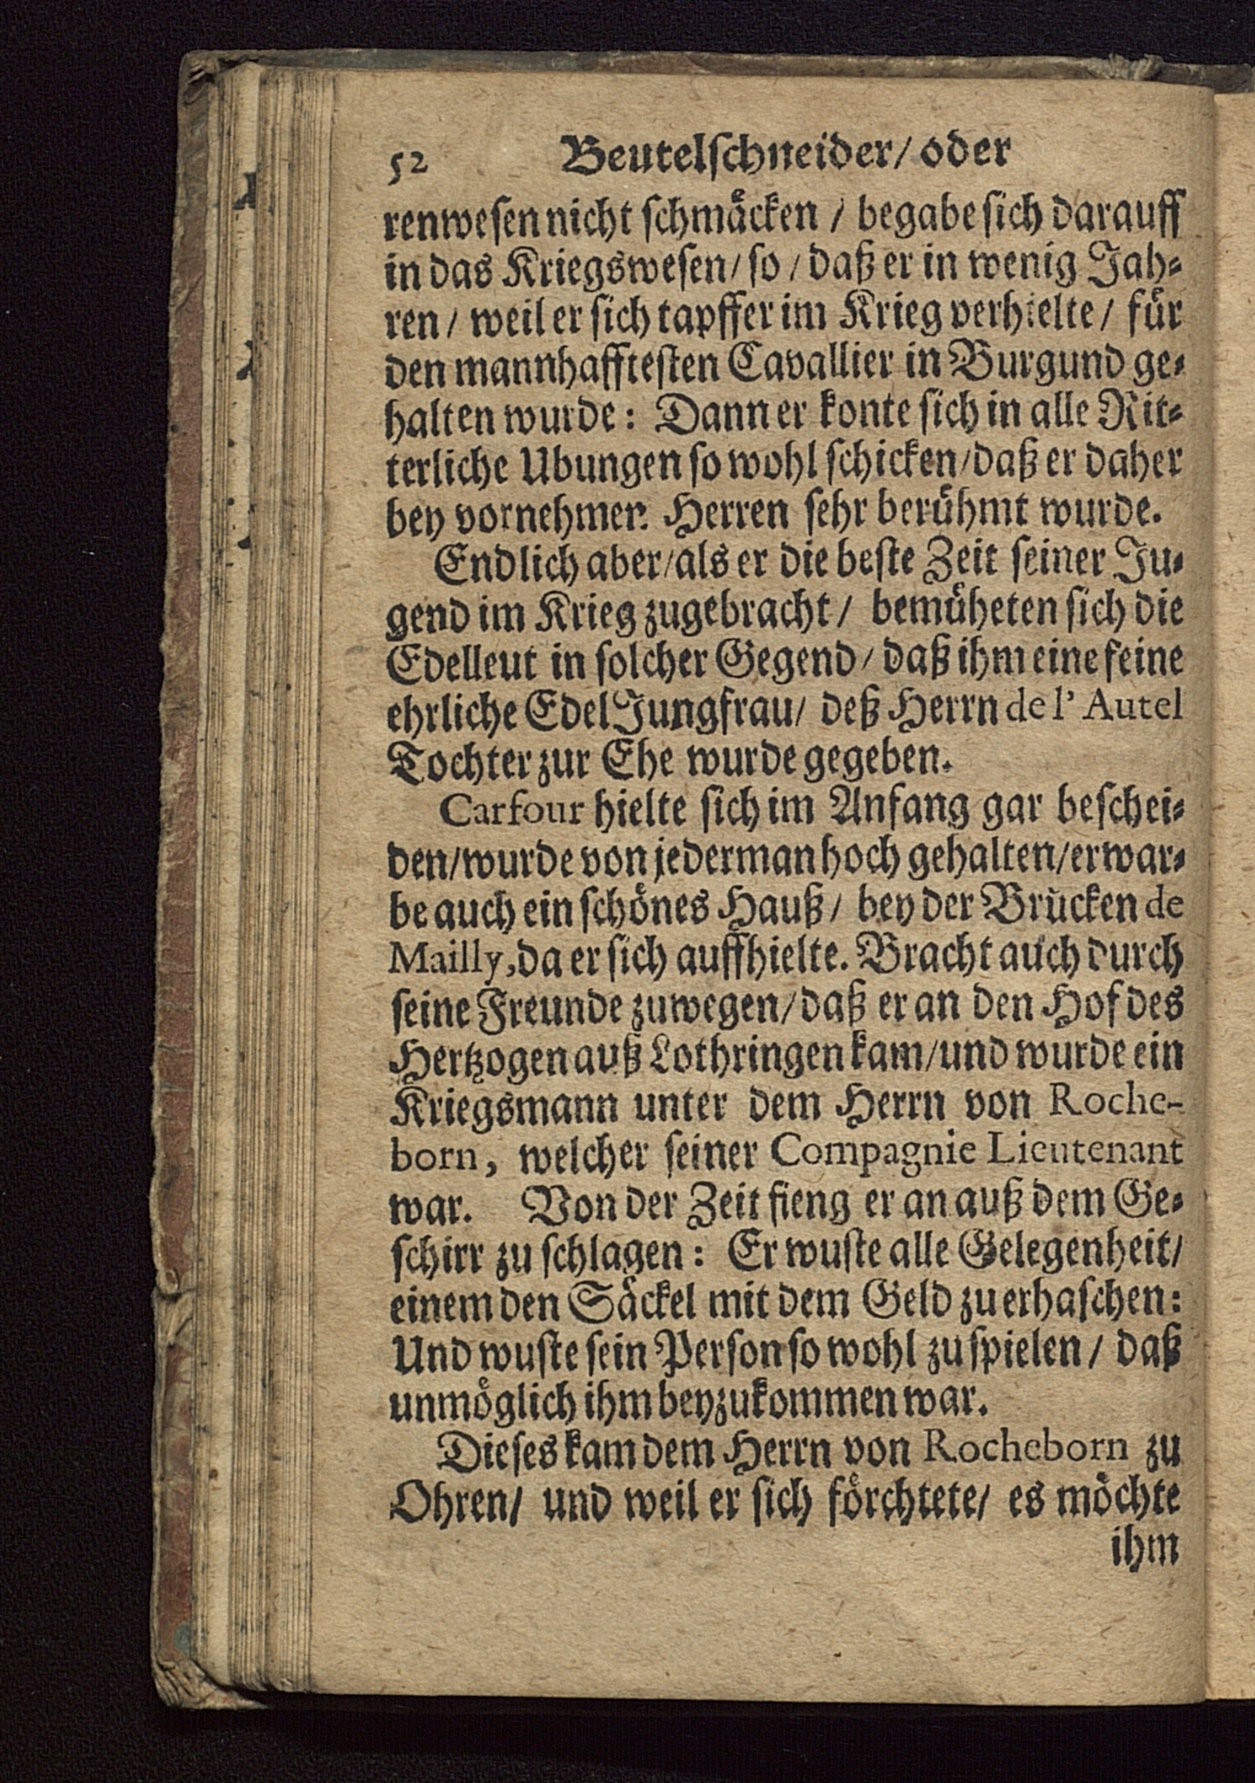 52 Beutelschneider/ oder
renwesen nicht schmäcken / begabe sich darauff
in das Kriegswesen/ so / daß er in wenig Jah-
ren / weil er sich tapffer im Krieg verhielte/ für
den mannhafftesten Cavallier in Burgund ge-
halten wurde: Dann er konte sich in alle Rit-
terliche Ubungen so wohl schicken/daß er daher
bey vornehmen Herren sehr berühmt wurde.
Endlich aber/als er die beste Zeit seiner Ju-
gend im Krieg zugebracht/ bemüheten sich die
Edelleut in solcher Gegend/ daß ihm eine feine
ehrliche Edel Jungfrau/ deß Herrn de l' Autel
Tochter zur Ehe wurde gegeben.
Carfour hielte sich im Anfang gar beschei-
den/wurde von jederman hoch gehalten/erwar-
be auch ein schönes Hauß/ bey der Brücken de
Mailly, da er sich auffhielte. Bracht auch durch
seine Freunde zuwegen/daß er an den Hof des
Hertzogen auß Lothringen kam/und wurde ein
Kriegsmann unter dem Herrn von Roche-
born, welcher seiner Compagnie Lieutenant
war. Von der Zeit fieng er an auß dem Ge-
schirr zu schlagen: Er wuste alle Gelegenheit/
einem den Säckel mit dem Geld zu erhaschen:
Und wuste sein Person so wohl zu spielen/ daß
unmöglich ihm beyzukommen war.
Dieses kam dem Herrn von Rocheborn zu
Ohren/ und weil er sich förchtete/ es möchte
ihm